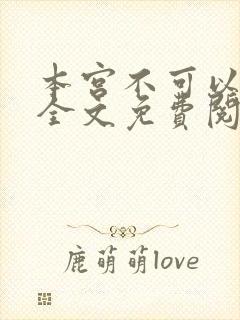 本宫不可以
全文免费阅
鹿萌萌love